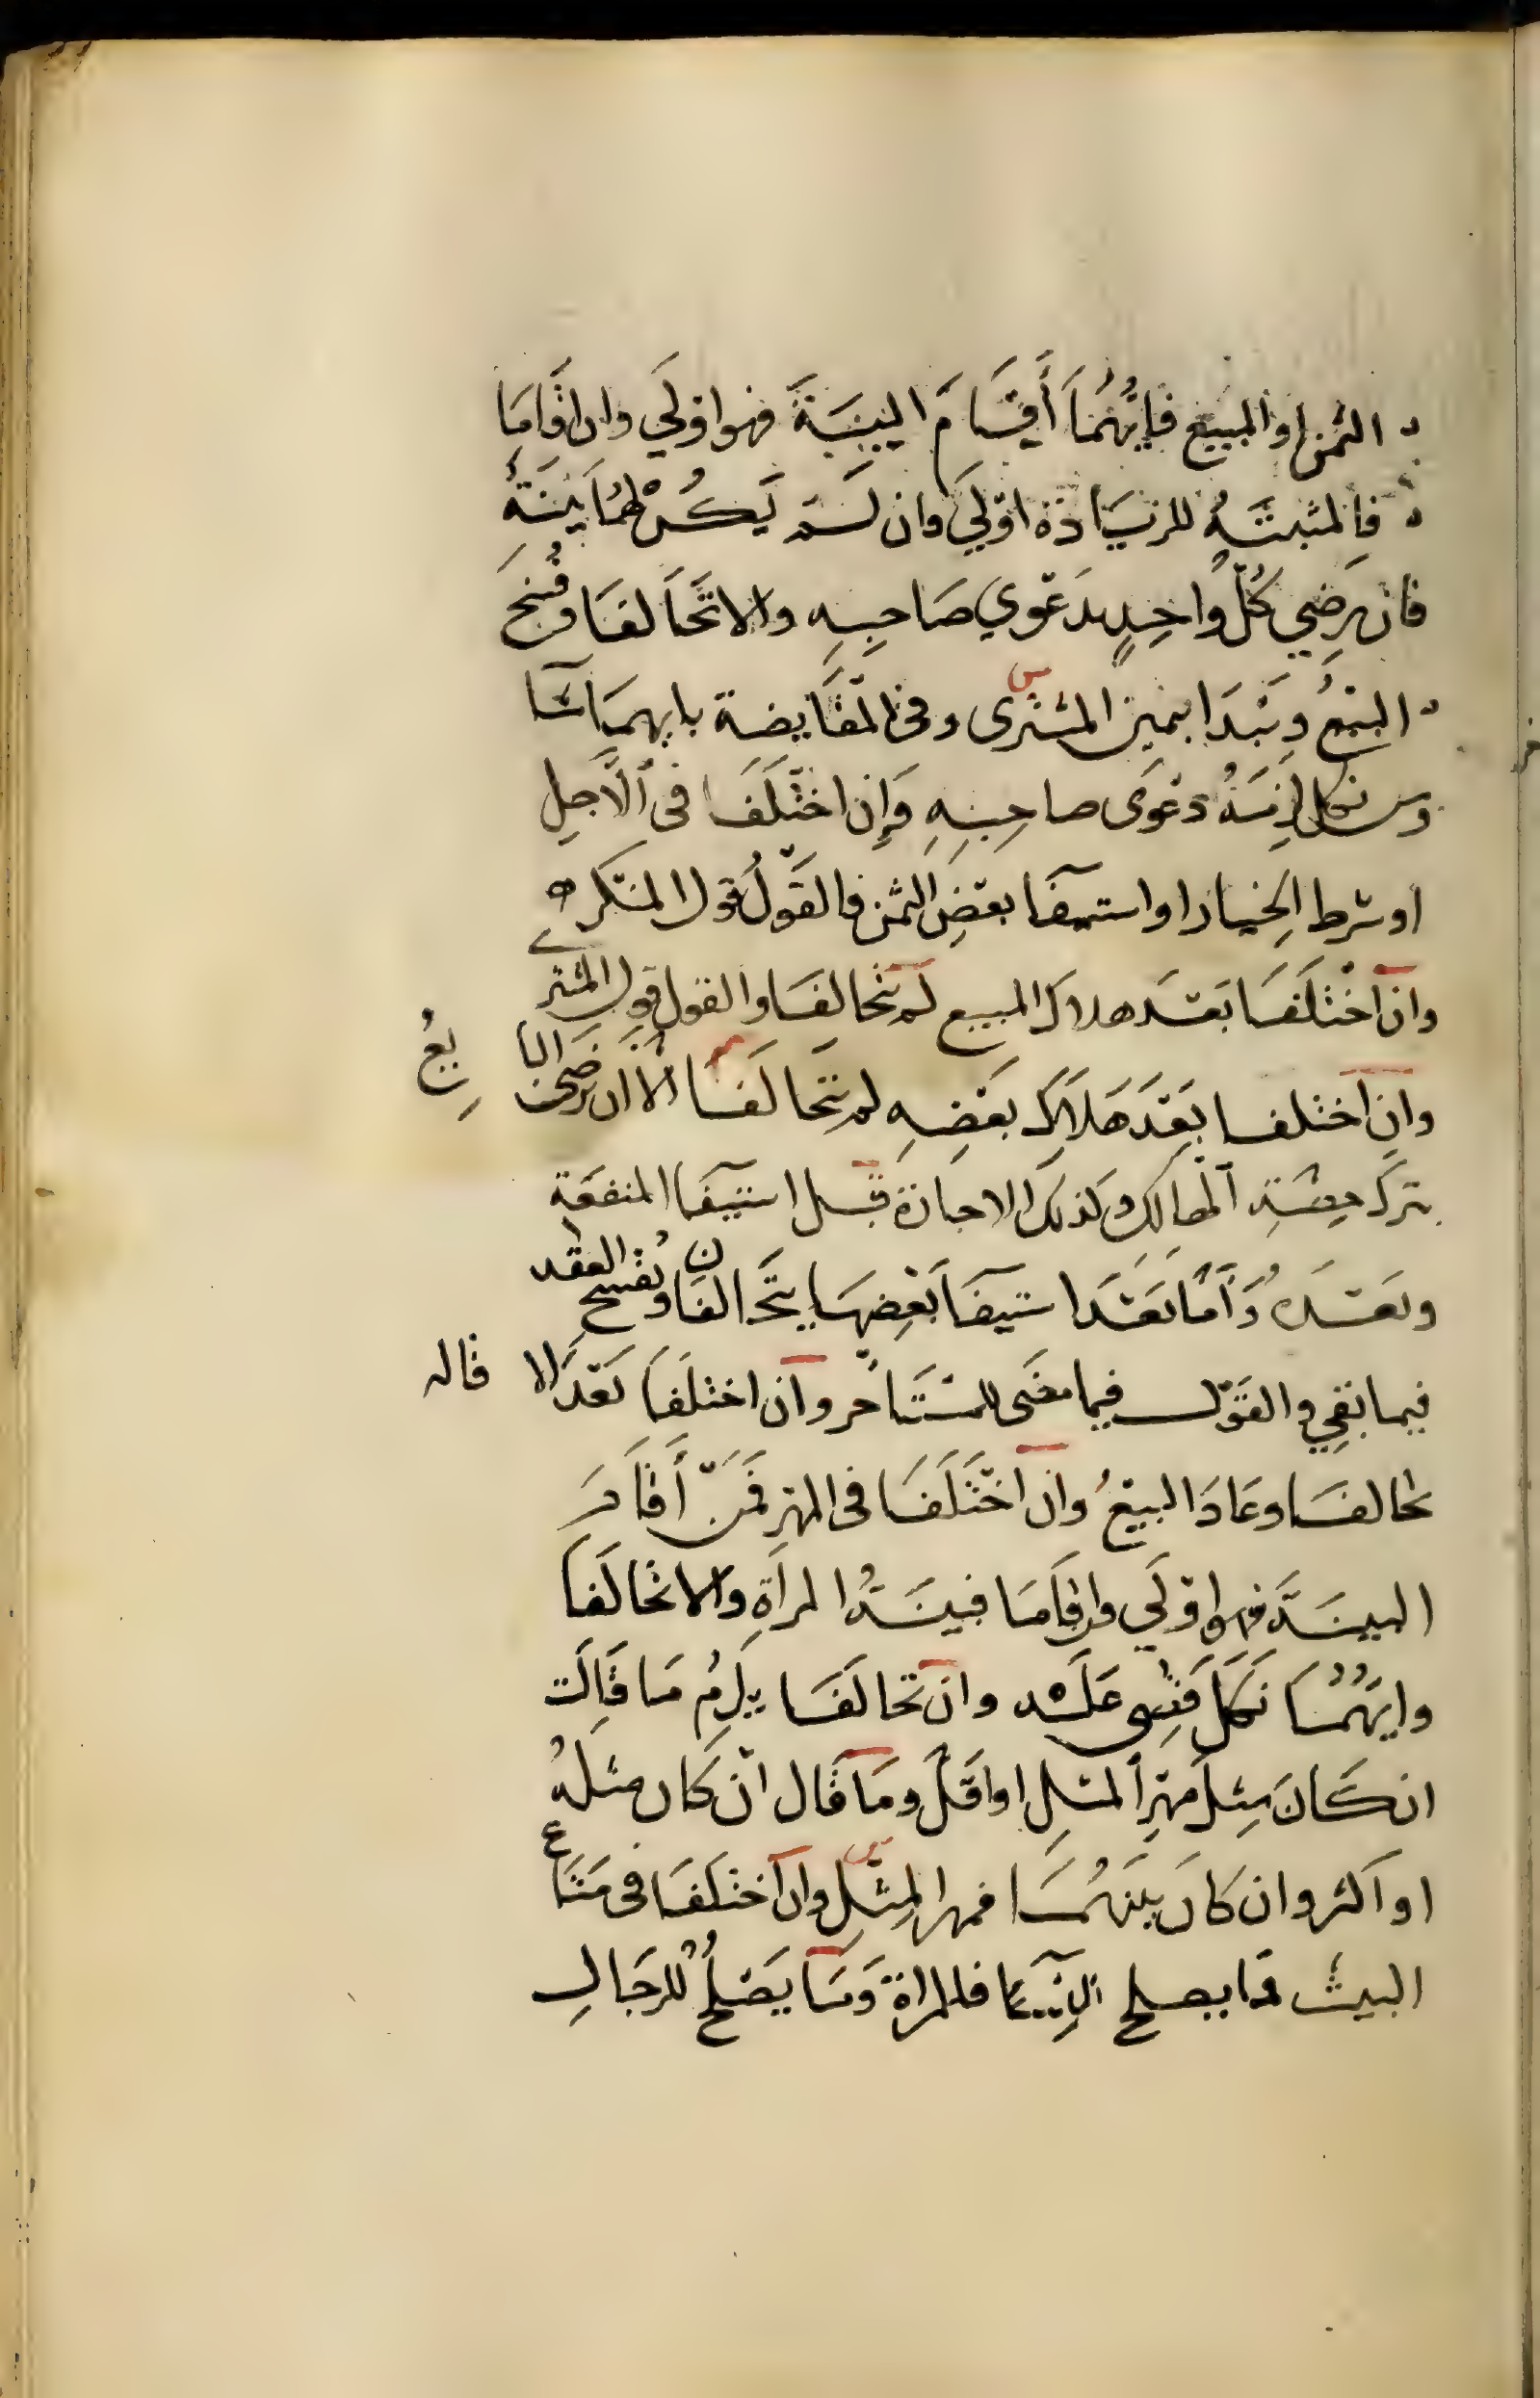 الثمن او المبيع فايهما أقام البينة فهو اولي وان اقاما
فالمثبتة للزيادة اولي وان لم يكن لهما بينة
فان رضي كل واحد بدعوي صاحبه والا تحالفا وفسخ
البيع ويبدا بيمين المشترى وفي المقايضة بايهما شا
ومن نكل لزمه دعوى صاحبه وإن اختلفا فى الأجل
او شرط الخيار او استيفا بعض الثمن فالقول قول المنكر
وان اختلفا بعد هلاك المبيع لم يتحالفا والقول قول المشترے
وان اختلفا بعد هلاك بعضه لم يتحالفا الا ان يرضى البايع
بترك حصة الهالك وكذلك الاجارة قبل استيفا المنفعة
وبعده وأما بعد استيفا بعضها يتحالفان ويفسخ العقد
فيما بقي والقول فيما مضى للمستأجر وان اختلفا بعد الاقاله
تحالفا وعاد البيع وان اختلفا فى المهر فمن أقام
البينة فهو اولي وان اقاما فبينة المرأة والا تحالفا
وايهما نكل قضى عليه وان تحالفا يلزم ما قالت
ان كان مثل مهر المثل او اقل وما قال ان كان مثله
او اكثر وان كان بينهما فمهر المثل وان اختلفا فى متاع
البيت فما يصلح للنسا فللمراة وما يصلح للرجال